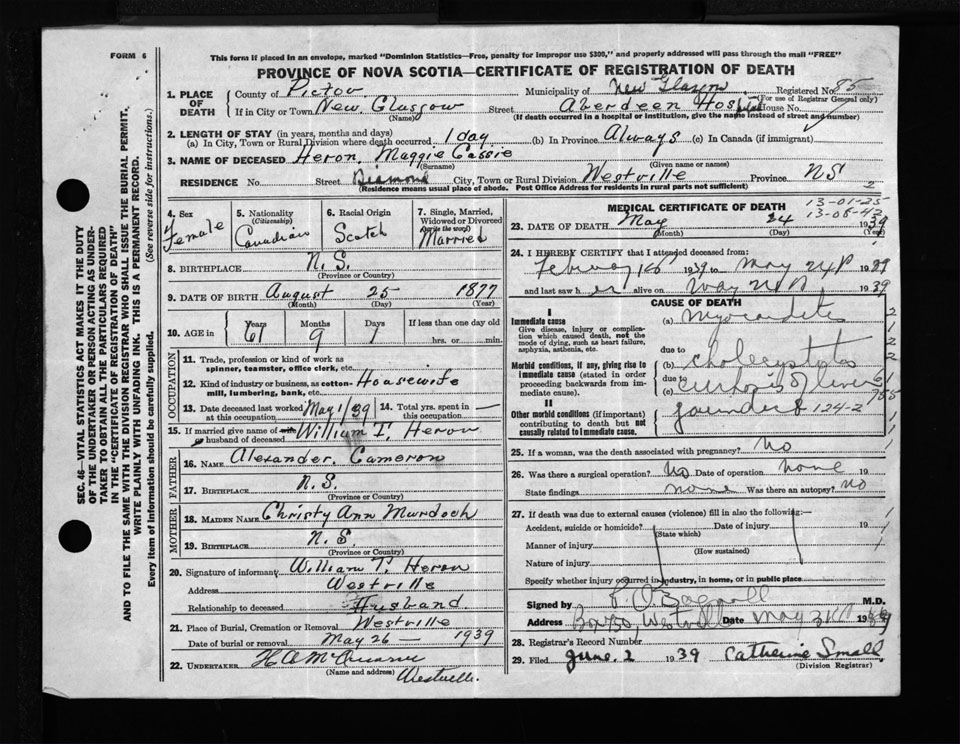 FORM 6
This form if placed in an envelope, marked "Dominion Statistics—Free, penalty for improper use $300," and properly addressed will pass through the mail "FREE"
PROVINCE OF NOVA SCOTIA—CERTIFICATE OF REGISTRATION OF DEATH
1. PLACE OF DEATH
County of Pictou Municipality of New Glasgow Registered No. 85
(For use of Registrar General only)
If in City or Town New Glasgow Street Aberdeen Hospital House No.
(Name) (If death occurred in a hospital or institution, give the name instead of street and number)
2. LENGTH OF STAY (in years, months and days)
(a) In City, Town or Rural Division where death occurred 1 day (b) In Province Always (c) In Canada (if immigrant)
3. NAME OF DECEASED Heron, Maggie Cassie
(Surname) (Given name or names)
RESIDENCE No. Street Diamond City, Town or Rural Division Westville Province NS
(Residence means usual place of abode. Post Office Address for residents in rural parts not sufficient) 2
4. Sex Female
5. Nationality (Citizenship) Canadian
6. Racial Origin Scotch
7. Single, Married, Widowed or Divorced (write the word) Married
8. BIRTHPLACE N.S.
(Province or Country)
9. DATE OF BIRTH August 25 1877
(Month) (Day) (Year)
10. AGE in Years Months Days If less than one day old
61 9 hrs. or min.
OCCUPATION
11. Trade, profession or kind of work as spinner, teamster, office clerk, etc.
12. Kind of industry or business, as cotton-mill, lumbering, bank, etc. Housewife
13. Date deceased last worked at this occupation May 1/39 14. Total yrs. spent in this occupation —
15. If married give name of wife or husband of deceased William T. Heron
FATHER
16. NAME Alexander Cameron
17. BIRTHPLACE N.S.
(Province or Country)
MOTHER
18. MAIDEN NAME Christy Ann Murdoch
19. BIRTHPLACE N.S
(Province or Country)
20. Signature of informant William T. Heron
Address Westville
Relationship to deceased Husband
21. Place of Burial, Cremation or Removal Westville
Date of burial or removal May 26 — 1939
22. UNDERTAKER H A
(Name and address) Westville.
MEDICAL CERTIFICATE OF DEATH
13-01-25
13-08-43
23. DATE OF DEATH May 24 1939
(Month) (Day) (Year)
24. I HEREBY CERTIFY that I attended deceased from:
1939 to May 24 1939
and last saw her alive on May 1939
CAUSE OF DEATH
I
Immediate cause
Give disease, injury or complication which caused death, not the mode of dying, such as heart failure, asphyxia, asthenia, etc.
(a) Myocarditis
due to
Morbid conditions, if any, giving rise to immediate cause (stated in order proceeding backwards from immediate cause).
(b)
due to
(c) of liver
II
Other morbid conditions (if important) contributing to death but not causally related to immediate cause.
124-2
25. If a woman, was the death associated with pregnancy? No
26. Was there a surgical operation? No Date of operation none 19
State findings none Was there an autopsy? No
27. If death was due to external causes (violence) fill in also the following:—
Accident, suicide or homicide? Date of injury 19
(State which)
Manner of injury
(How sustained)
Nature of injury
Specify whether injury occurred in industry, in home, or in public place
Signed by M.D.
Address Westville Date May 1939
28. Registrar's Record Number
29. Filed June 2 1939 Catherine Small
(Division Registrar)
SEC. 46—VITAL STATISTICS ACT MAKES IT THE DUTY
OF THE UNDERTAKER OR PERSON ACTING AS UNDER-
TAKER TO OBTAIN ALL THE PARTICULARS REQUIRED
IN THE "CERTIFICATE OF REGISTRATION OF DEATH"
AND TO FILE THE SAME WITH THE DIVISION REGISTRAR WHO SHALL ISSUE THE BURIAL PERMIT.
WRITE PLAINLY WITH UNFADING INK. THIS IS A PERMANENT RECORD.
Every item of information should be carefully supplied. (See reverse side for instructions.)